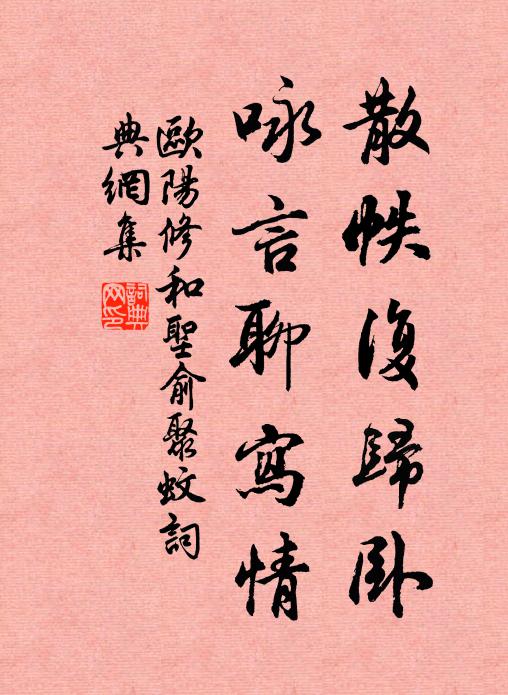 散帙復歸卧
咏言聊寫情
歐陽修和聖俞聚蚊詞
典網集
詞典网印